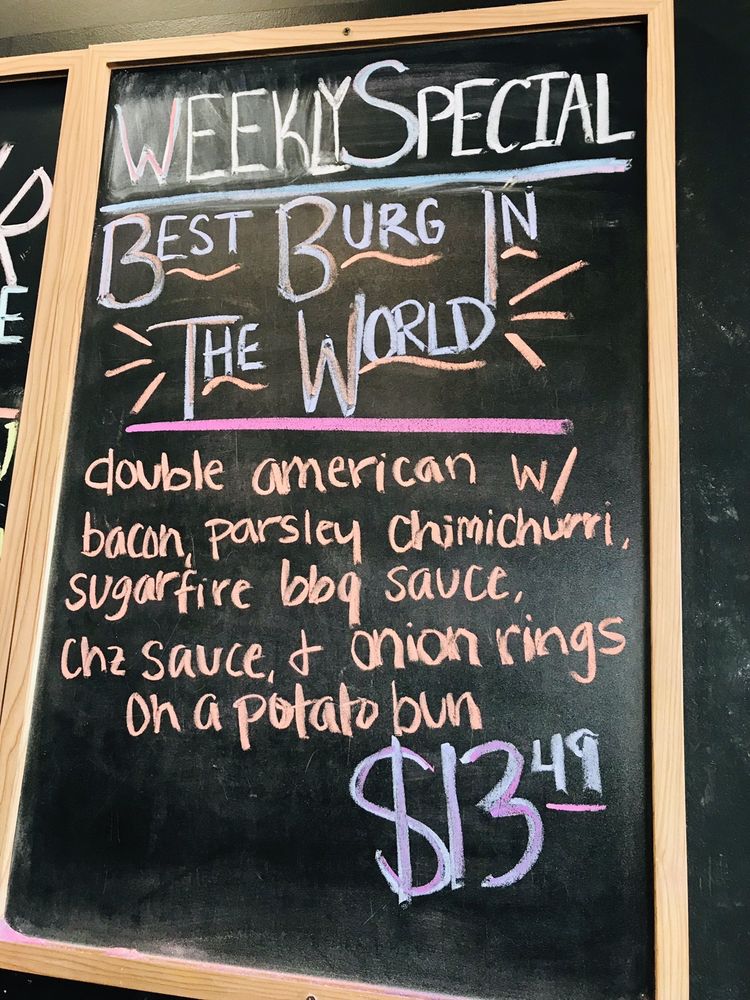 WEEKLY SPECIAL
BEST BURG IN
THE WORLD
double american w/
bacon, parsley chimichurri,
sugarfire bbq sauce,
chz sauce, & onion rings
on a potato bun
$13 49